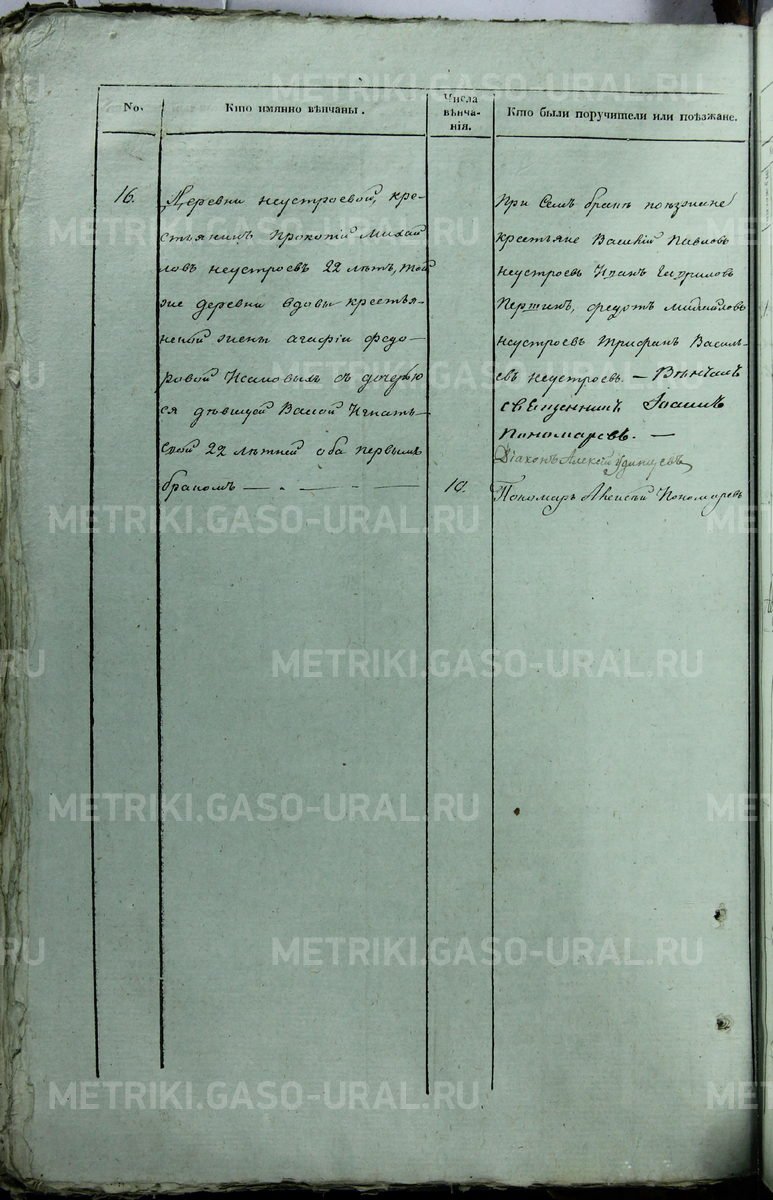 METRIKI.GASO-URAL.RU
No.
Кто имянно вѣнчаны.
Числа
вѣнча-
нія.
Кто были поручители или поѣзжане.
16.
Деревни неустроевой, кре-
стьянинъ Прокопій Михай
ловъ неустроевъ 22 лѣтъ, той
же деревни вдовы крестья-
нской жены агафіи федо-
ровой съ дочерью
ея дѣвицей Игнать-
евой 22 лѣтней оба первымъ
бракомъ
10.
При семъ бракѣ поѣзжане
крестьяне Василій Павловъ
неустроевъ Иванъ Гавриловъ
Першинъ, федотъ михайловъ
неустроевъ Трифанъ Василь-
евъ неустроевъ. — Вѣнчалъ
священникъ Іоаннъ
пономаревъ. —
Діаконъ Алексій Удинцевъ
Пономарь Алексѣй Пономаревъ